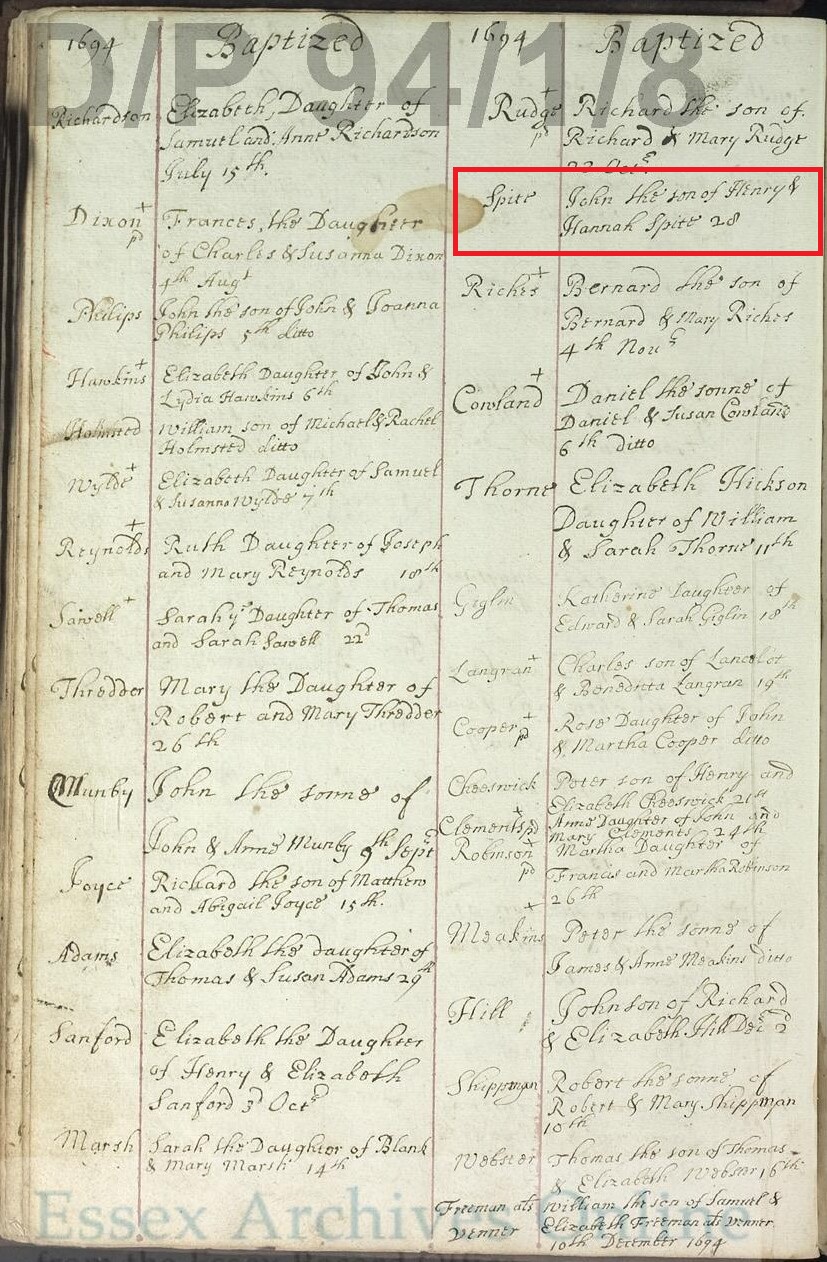 D/P 94/1/8
1694 Baptized
Richardson Elizabeth, Daughter of
Samuel and Anne Richardson
July 15th.
Dixon + pd Frances, the Daughter
of Charles & Susanna Dixon
4th Augt
Philips John the son of John & Joanna
Philips 5th ditto
Hawkins + Elizabeth Daughter of John &
Lydia Hawkins 6th
Holmsted William son of Michael & Rachel
Holmsted ditto
Wylde + Elizabeth Daughter of Samuel
& Susanna Wylde 7th
Reynolds + Ruth Daughter of Joseph
and Mary Reynolds 18th
Sawell + Sarah ye Daughter of Thomas
and Sarah Sawell 22d
Thredder Mary the Daughter of
Robert and Mary Thredder
26th
Munby John the sonne of
John & Anne Munby 9th Septr
Joyce Richard the son of Matthew
and Abigail Joyce 15th.
Adams Elizabeth the daughter of
Thomas & Susan Adams 29th
Sanford Elizabeth the Daughter
of Henry & Elizabeth
Sanford 3d Octr
Marsh Sarah the Daughter of Blank
& Mary Marsh 14th
1694 Baptized
Rudge + pd Richard the son of
Richard & Mary Rudge
22 Octr
Spite John the son of Henry &
Hannah Spite 28
Riches + Bernard the son of
Bernard & Mary Riches
4th Novr
Cowland + Daniel the sonne of
Daniel & Susan Cowland
6th ditto
Thorne Elizabeth Hickson
Daughter of William
& Sarah Thorne 11th
Giglin Katherine Daughter of
Edward & Sarah Giglin 18th
Langran + Charles son of Lancelot
& Benedicta Langran 19th
Cooper + pd Rose Daughter of John
& Martha Cooper ditto
Cheeswick Peter son of Henry and
Elizabeth Cheeswick 21st
Clements + pd Anne Daughter of John and
Mary Clements 24th
Robinson + pd Martha Daughter of
Francis and Martha Robinson
26th
Meakins + Peter the sonne of
James & Anne Meakins ditto
Hill John son of Richard
& Elizabeth Hill Decr 2d
Shippman Robert the sonne of
Robert & Mary Shippman
10th
Webster Thomas the son of Thomas
& Elizabeth Webster 16th
Freeman als William the son of Samuel &
Venner Elizabeth Freeman als Venner
10th December 1694
Essex Archives Online